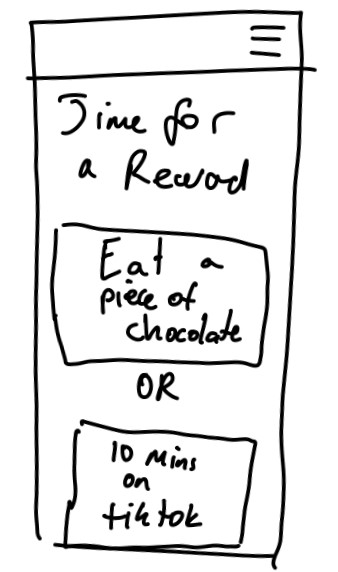 Time for
a Reward
Eat a
piece of
chocolate
OR
10 mins
on
tiktok